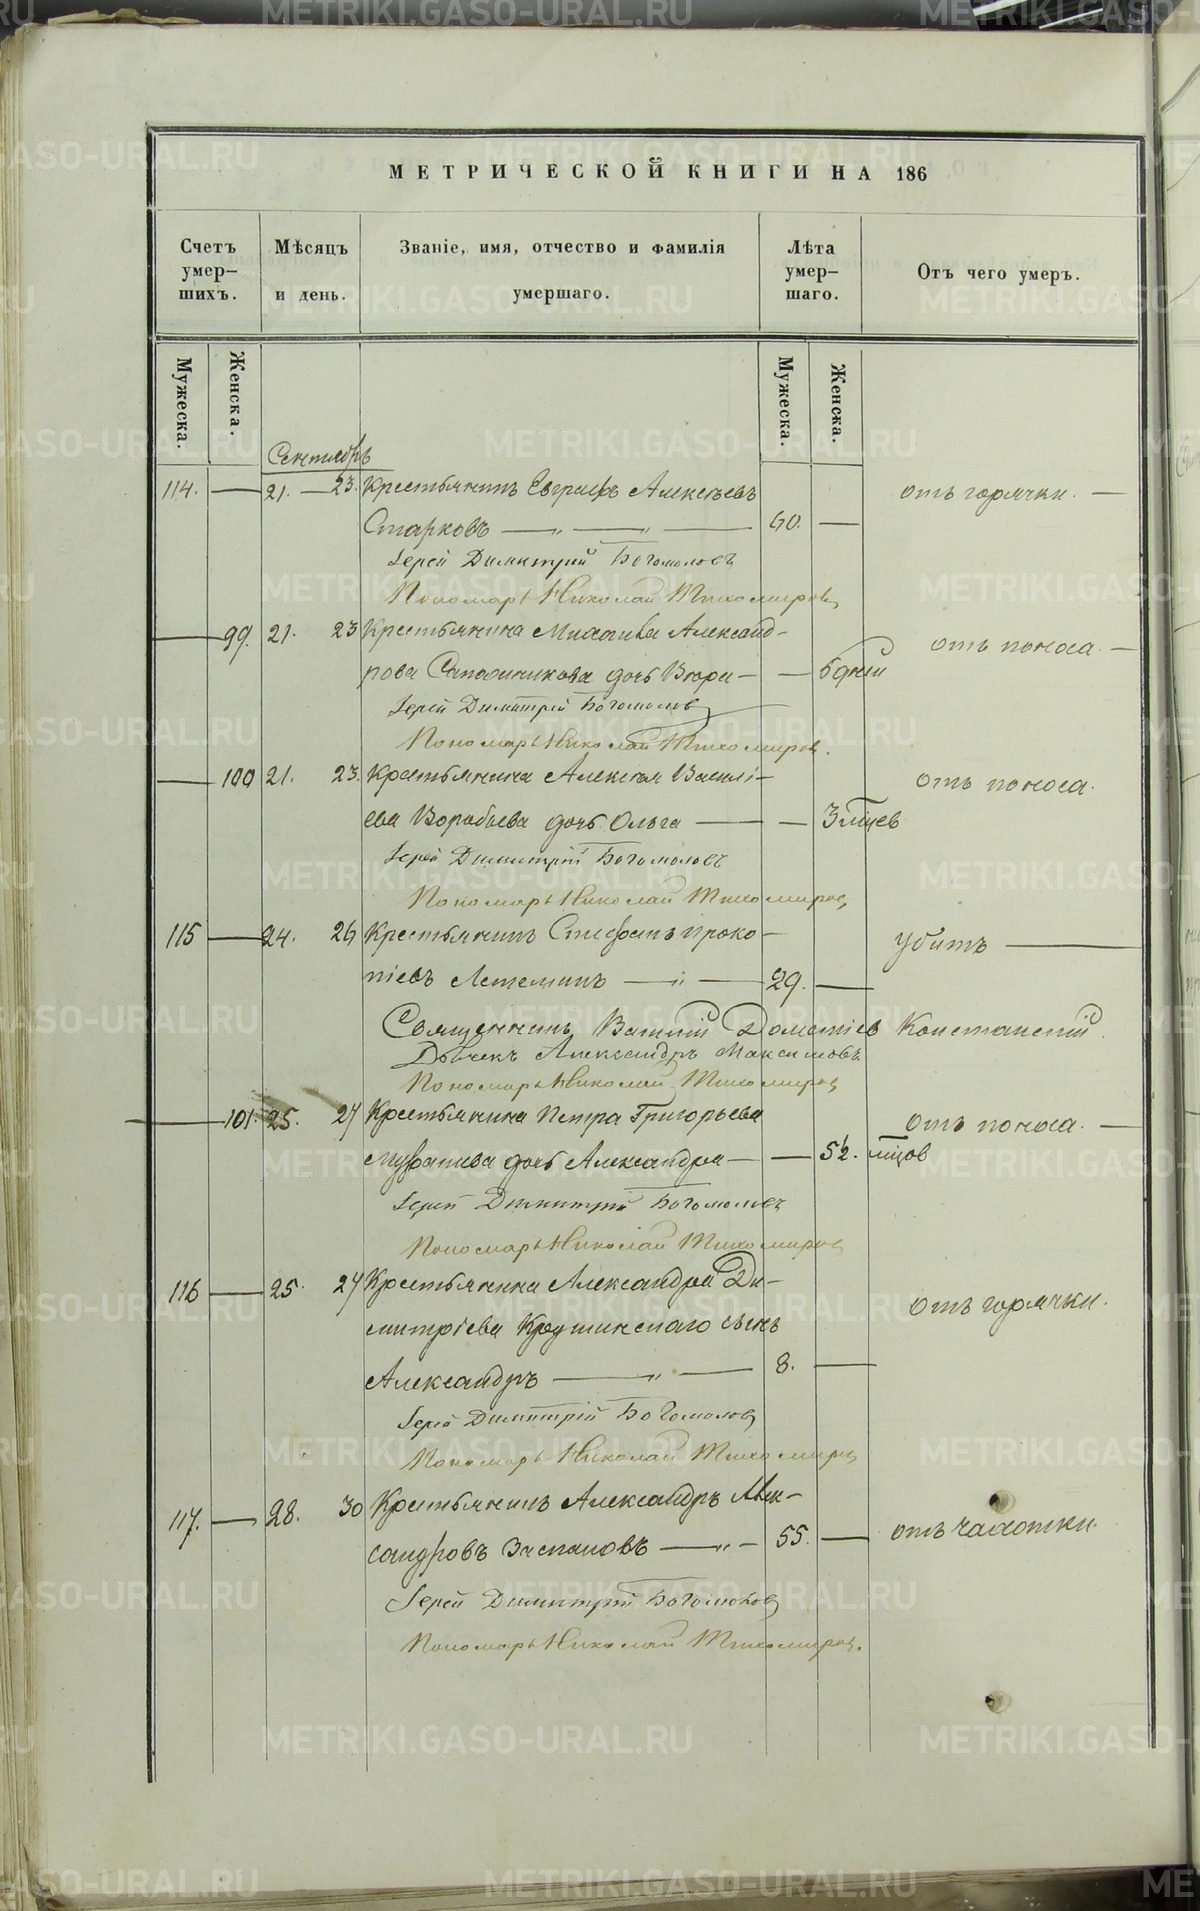 МЕТРИЧЕСКОЙ КНИГИ НА 186
Счетъ умер-шихъ.
Мѣсяцъ и день.
Званіе, имя, отчество и фамилія умершаго.
Лѣта умер-шаго.
Отъ чего умеръ.
Мужеска.
Женска.
Мужеска.
Женска.
Сентябрь
114. — 21. — 23. Крестьянинъ Евграфъ Алексѣевъ
отъ горячки. —
Старковъ — „ — „ — 60. —
Іерей Димитрій Богомоловъ
Пономарь Николай Тихомировъ
— 99. 21. 23 Крестьянина Александ-
отъ поноса. —
рова дочь — —
Іерей Димитрій Богомоловъ
Пономарь Николай Тихомировъ.
— 100 21. 23. Крестьянина Алексѣя Василі-
отъ поноса.
ева Воробьева дочь Ольга — — 3 мцев
Іерей Димитрій Богомоловъ
Пономарь Николай Тихомировъ
115 — 24. 26 Крестьянинъ Стефанъ Проко-
убитъ —
піевъ Летеминъ — „ — 29. —
Священникъ Василій Дометіев
Дьячекъ Александръ Максимовъ
Пономарь Николай Тихомировъ
— 101. 25. 27 Крестьянина Петра Григорьева
отъ поноса. —
дочь Александра — — 5½. мцов
Іерей Димитрій Богомоловъ
Пономарь Николай Тихомировъ
116 — 25. 27 Крестьянина Александра Ди-
отъ горячки.
митріева Крушинскаго сынъ
Александръ — „ — 8. —
Іерей Димитрій Богомоловъ
Пономарь Николай Тихомировъ
117. — 28. 30 Крестьянинъ Александръ Алек-
сандровъ — „ — 55. —
отъ чахотки.
Іерей Димитрій Богомоловъ
Пономарь Николай Тихомировъ.
METRIKI.GASO-URAL.RU